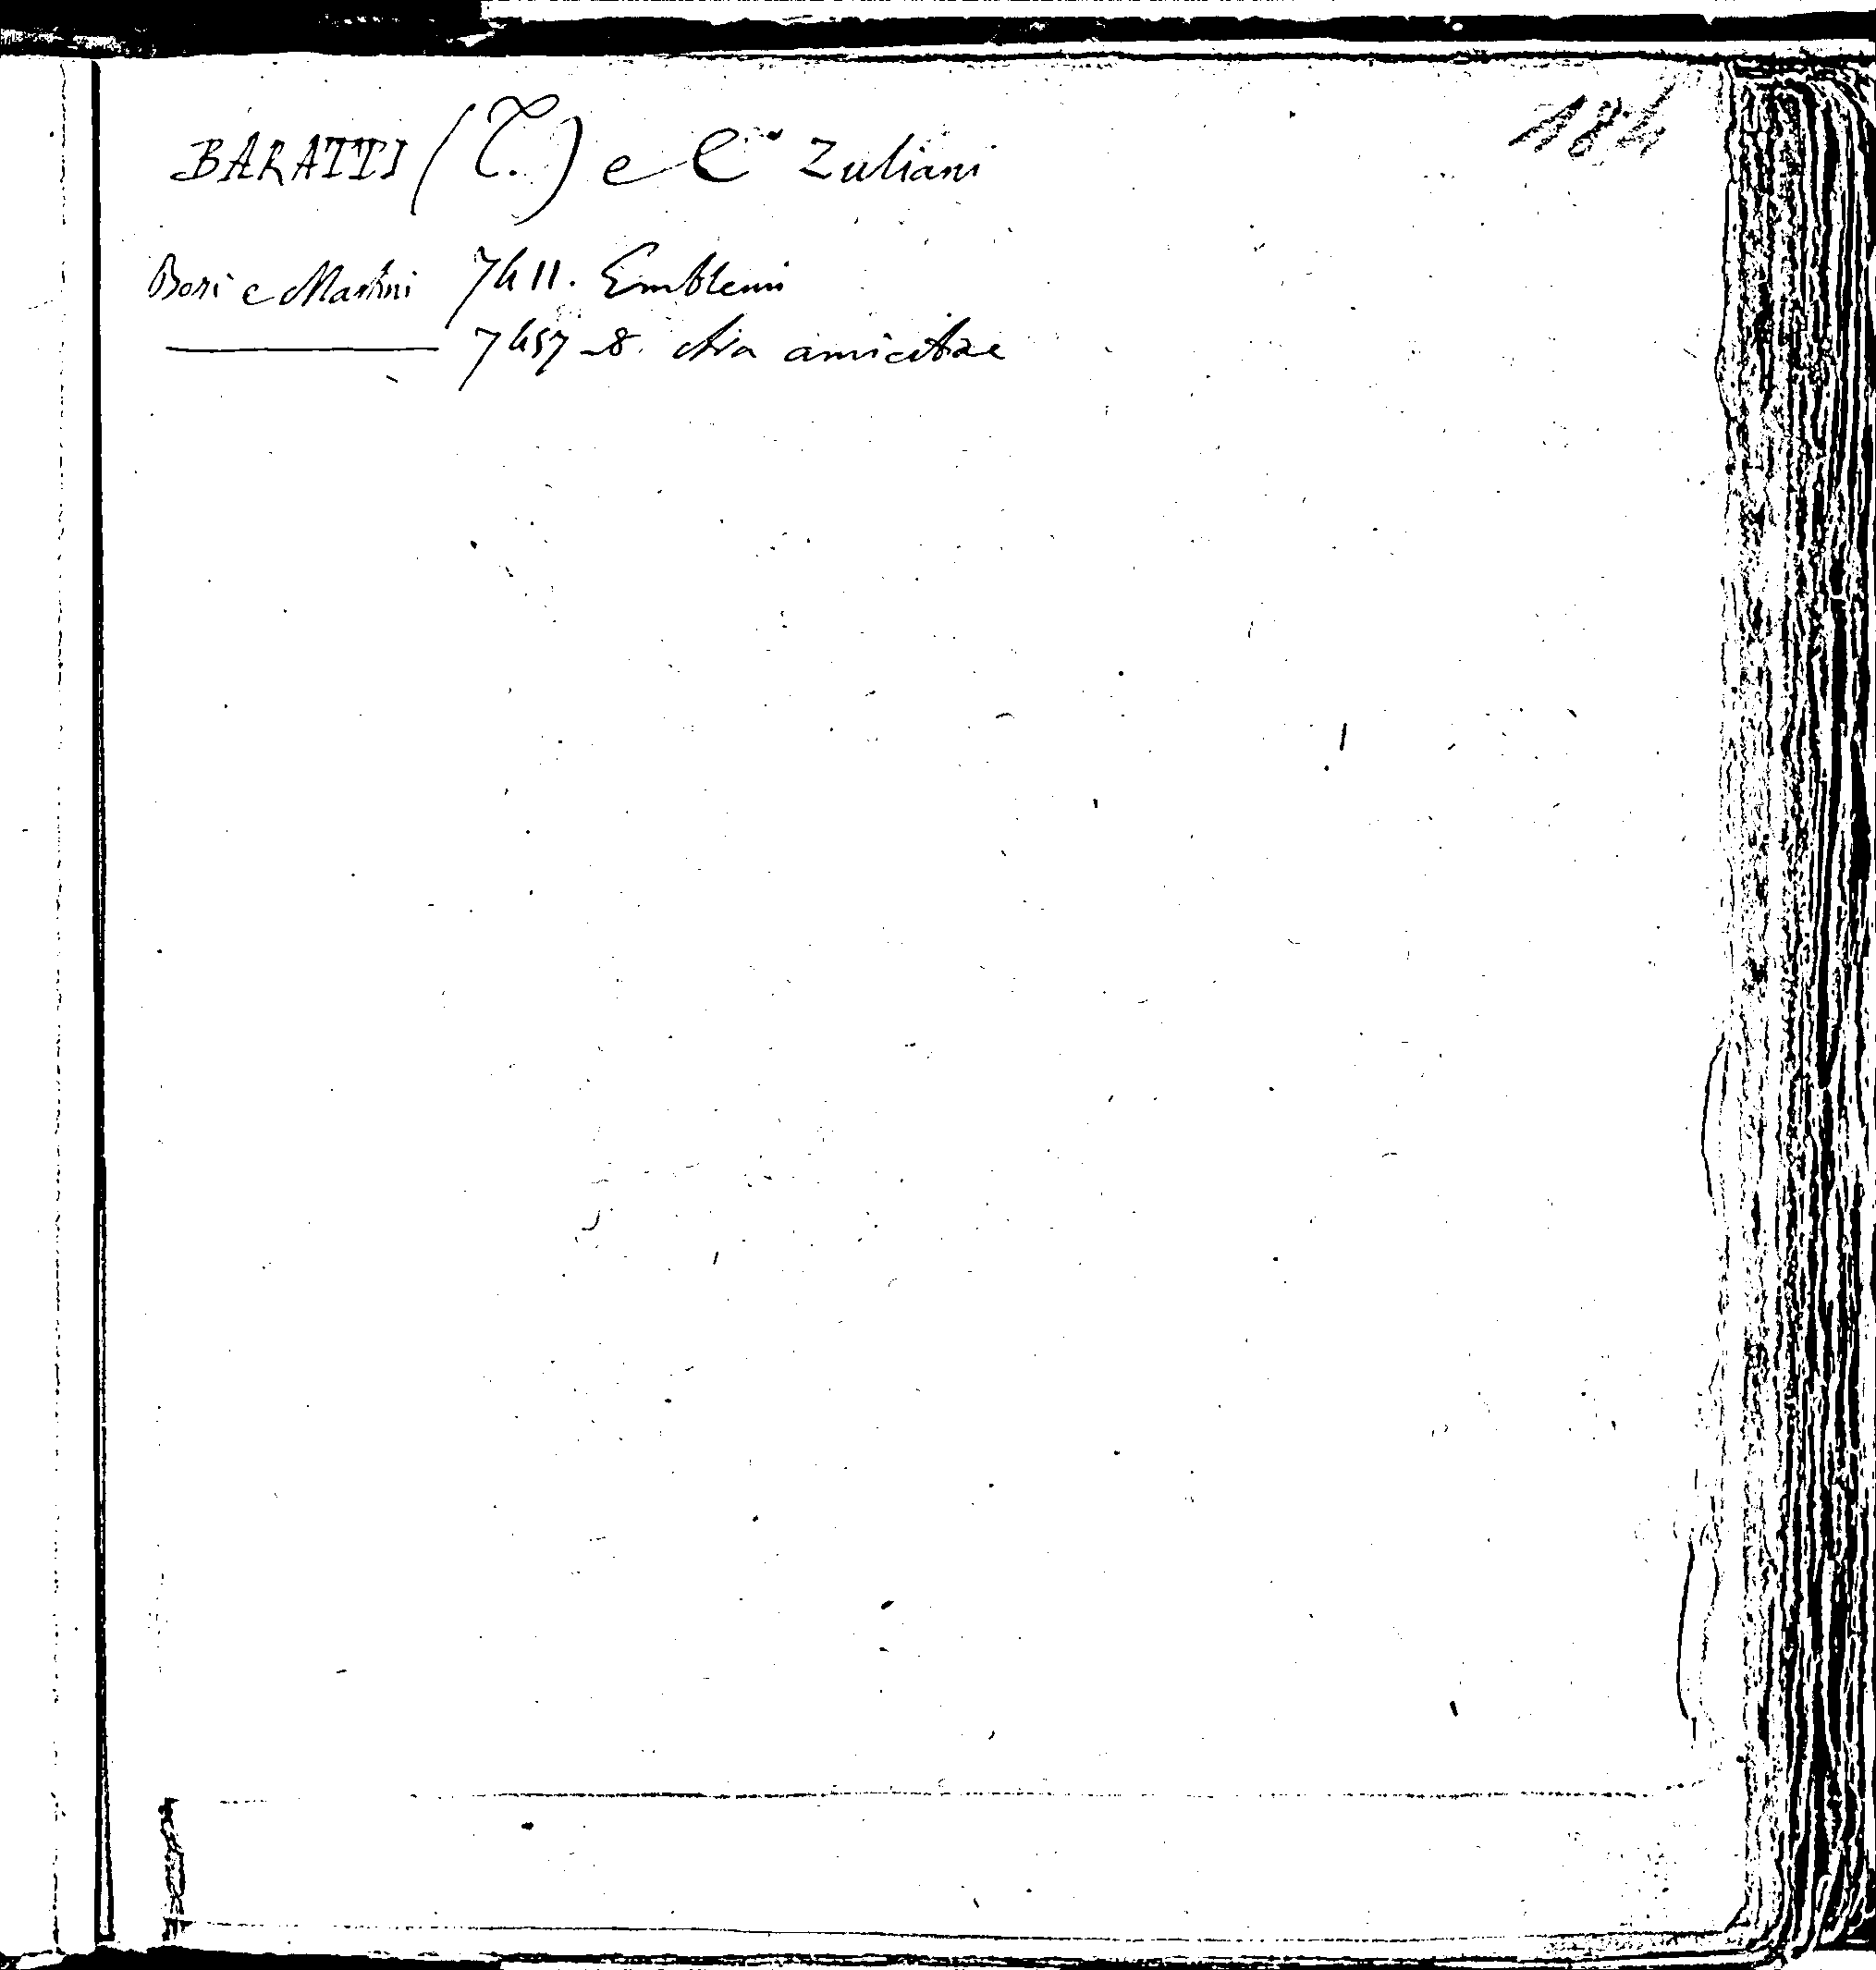 184
BARATTI (C.) e C.º Zuliani
Bosi e Martini 7411. Emblemi
7457-8. Ara amicitiae